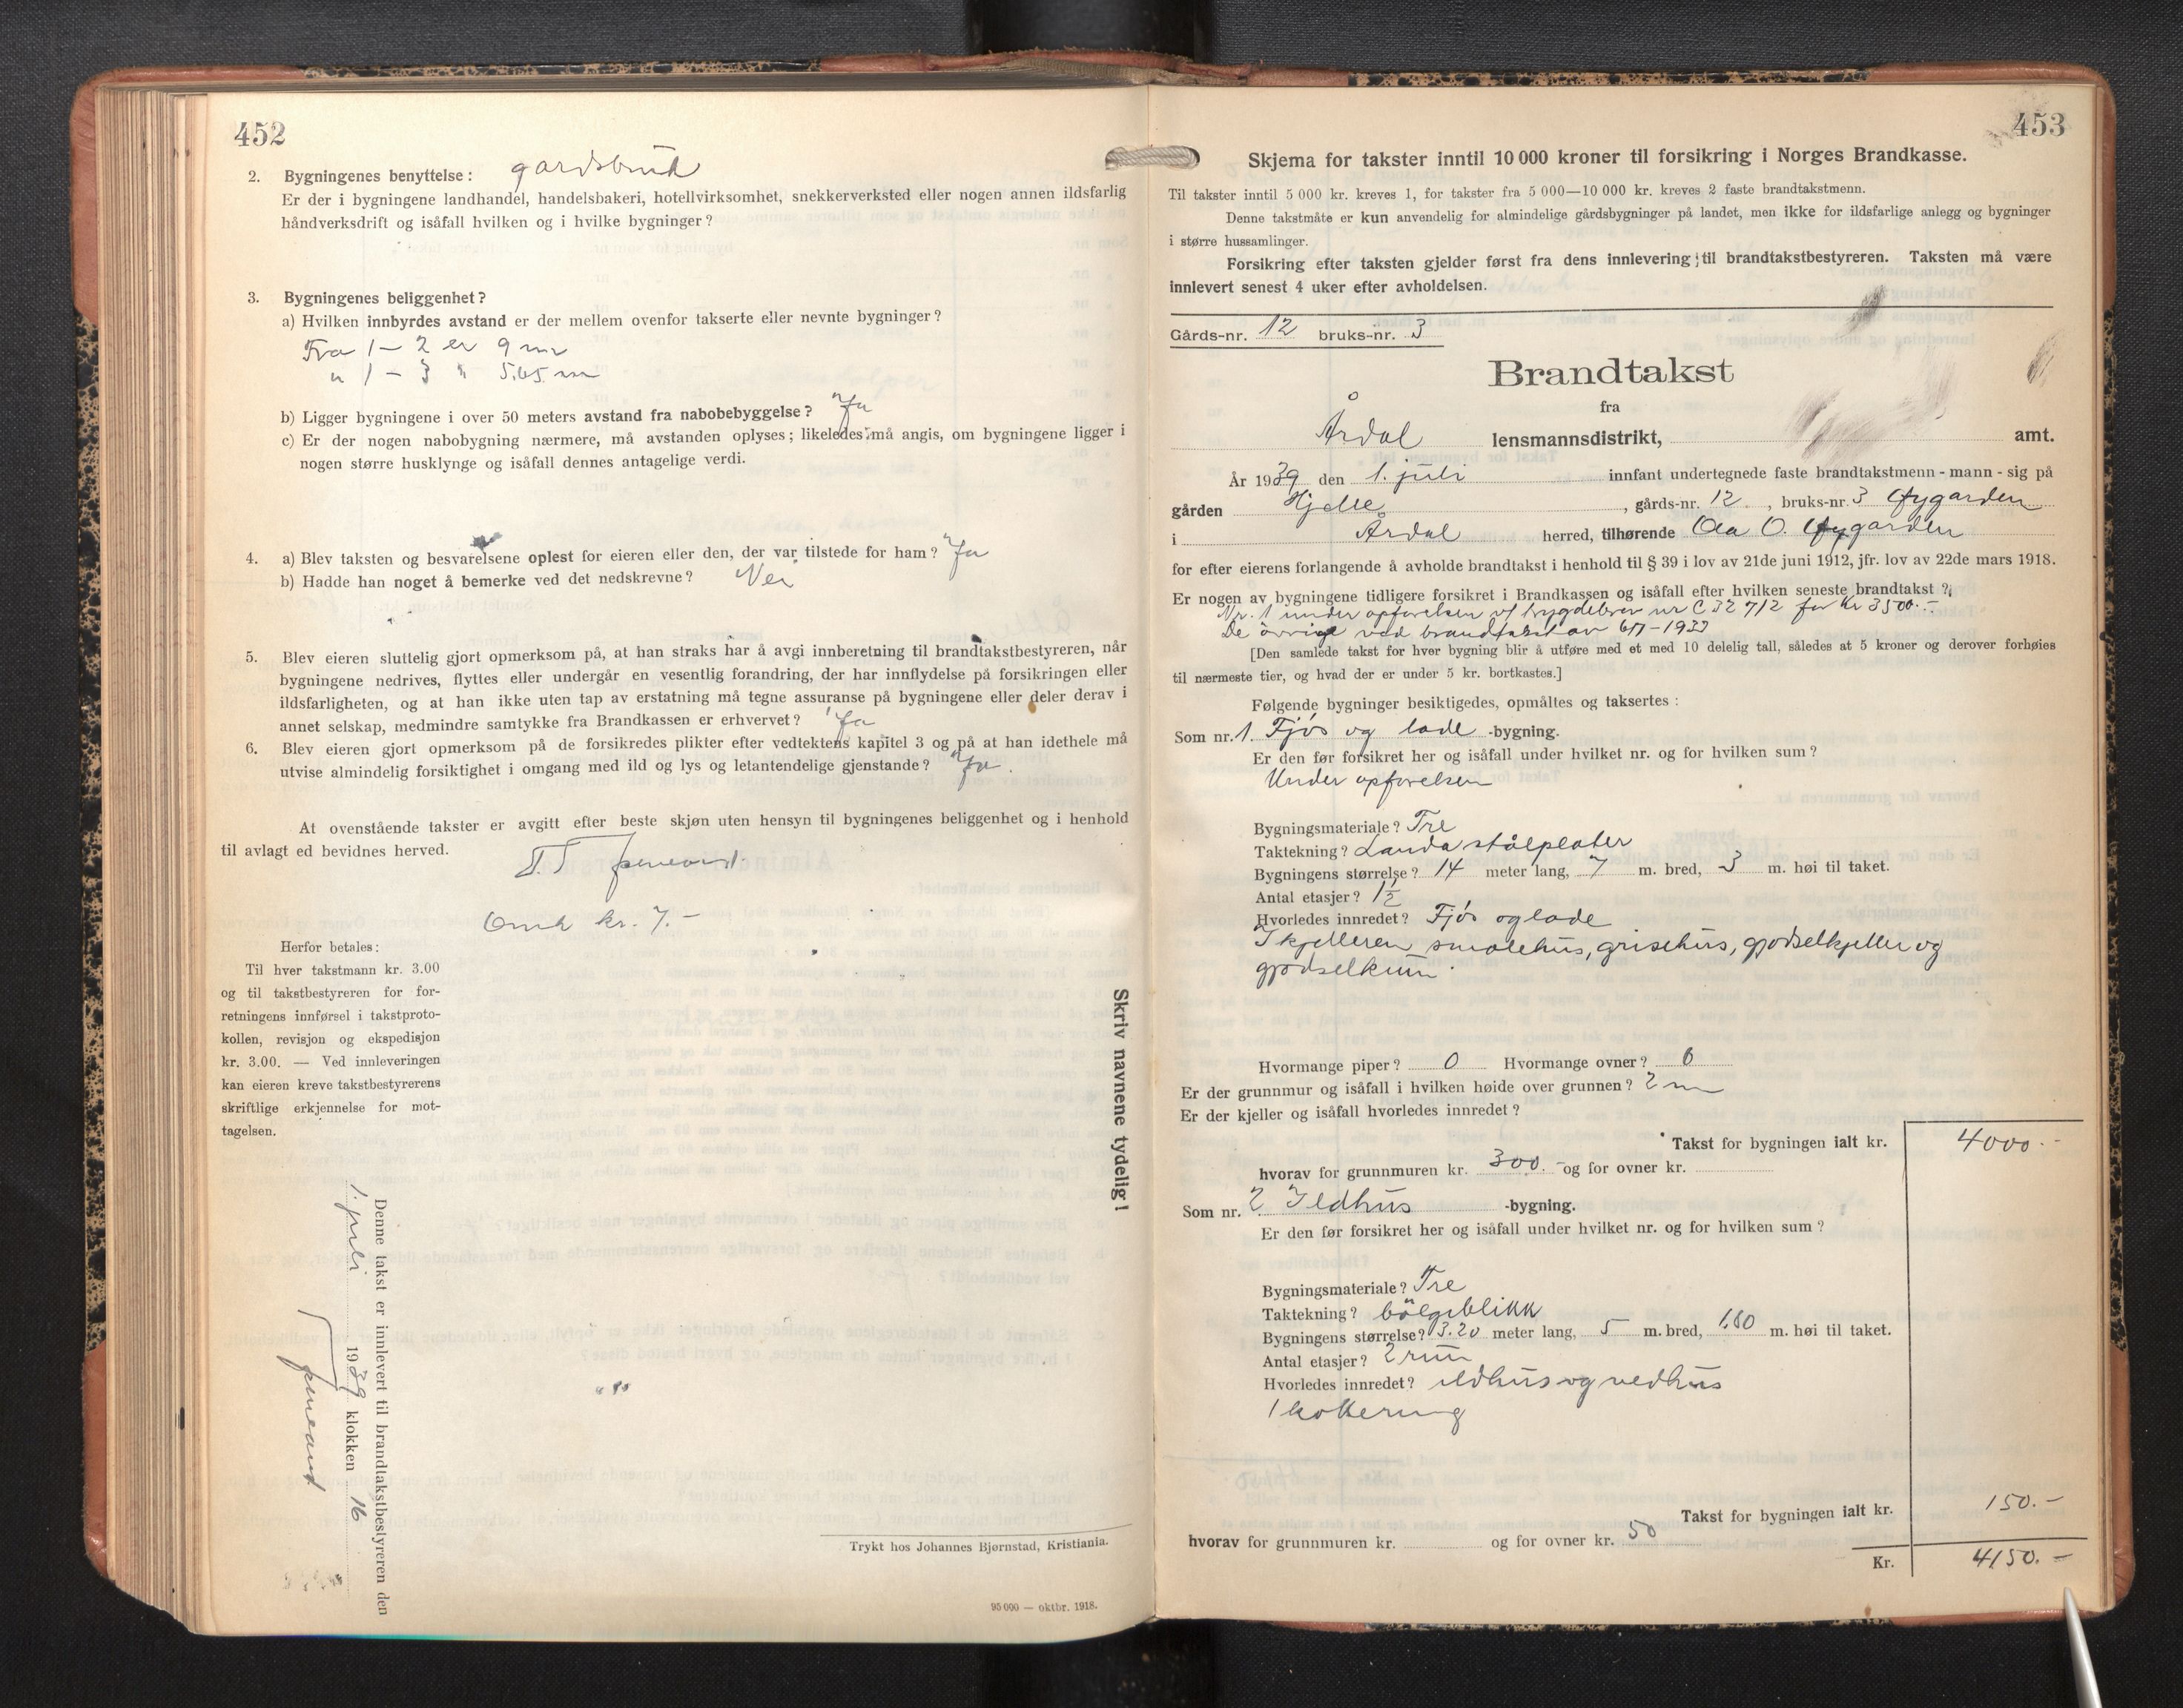 452
2. Bygningenes benyttelse: gardsbruk
Er der i bygningene landhandel, handelsbakeri, hotellvirksomhet, snekkerverksted eller nogen annen ildsfarlig
håndverksdrift og isåfall hvilken og i hvilke bygninger?
3. Bygningenes beliggenhet?
a) Hvilken innbyrdes avstand er der mellem ovenfor takserte eller nevnte bygninger?
Fra 1 – 2 er 9 m
" 1 – 3 " 5.65 m
b) Ligger bygningene i over 50 meters avstand fra nabobebyggelse? Ja
c) Er der nogen nabobygning nærmere, må avstanden oplyses; likeledes må angis, om bygningene ligger i
nogen større husklynge og isåfall dennes antagelige verdi.
4. a) Blev taksten og besvarelsene oplest for eieren eller den, der var tilstede for ham? Ja
b) Hadde han noget å bemerke ved det nedskrevne? Nei
5. Blev eieren sluttelig gjort opmerksom på, at han straks har å avgi innberetning til brandtakstbestyreren, når
bygningene nedrives, flyttes eller undergår en vesentlig forandring, der har innflydelse på forsikringen eller
ildsfarligheten, og at han ikke uten tap av erstatning må tegne assuranse på bygningene eller deler derav i
annet selskap, medmindre samtykke fra Brandkassen er erhvervet? Ja
6. Blev eieren gjort opmerksom på de forsikredes plikter efter vedtektens kapitel 3 og på at han idethele må
utvise almindelig forsiktighet i omgang med ild og lys og letantendelige gjenstande? Ja.
At ovenstående takster er avgitt efter beste skjøn uten hensyn til bygningenes beliggenhet og i henhold
til avlagt ed bevidnes herved.
kr. 7.-
Herfor betales:
Til hver takstmann kr. 3.00
og til takstbestyreren for for-
retningens innførsel i takstproto-
kollen, revisjon og ekspedisjon
kr. 3.00. — Ved innleveringen
kan eieren kreve takstbestyrerens
skriftlige erkjennelse for mot-
tagelsen.
Skriv navnene tydelig!
Denne takst er innlevert til brandtakstbestyreren den
1. juli 1939 klokken 16
Trykt hos Johannes Bjørnstad, Kristiania.
95 000 — oktbr. 1918.
453
Skjema for takster inntil 10 000 kroner til forsikring i Norges Brandkasse.
Til takster inntil 5 000 kr. kreves 1, for takster fra 5 000—10 000 kr. kreves 2 faste brandtakstmenn.
Denne takstmåte er kun anvendelig for almindelige gårdsbygninger på landet, men ikke for ildsfarlige anlegg og bygninger
i større hussamlinger.
Forsikring efter taksten gjelder først fra dens innlevering til brandtakstbestyreren. Taksten må være
innlevert senest 4 uker efter avholdelsen.
Gårds-nr. 12 bruks-nr. 3
Brandtakst
fra
Årdal lensmannsdistrikt, amt.
År 1939 den 1. juli innfant undertegnede faste brandtakstmenn - mann - sig på
gården Hjelle, gårds-nr. 12, bruks-nr. 3 Øygarden
i Årdal herred, tilhørende Ola O. Øygarden
for efter eierens forlangende å avholde brandtakst i henhold til § 39 i lov av 21de juni 1912, jfr. lov av 22de mars 1918.
Er nogen av bygningene tidligere forsikret i Brandkassen og isåfall efter hvilken seneste brandtakst?
Nr. 1 under opførelsen bygdebrev nr C 32 712 for kr 3500.-
De øvrige ved brandtakst av 6/7-1933
[Den samlede takst for hver bygning blir å utføre med et med 10 delelig tall, således at 5 kroner og derover forhøies
til nærmeste tier, og hvad der er under 5 kr. bortkastes.]
Følgende bygninger besiktigedes, opmåltes og taksertes:
Som nr. 1. Fjós og lade -bygning.
Er den før forsikret her og isåfall under hvilket nr. og for hvilken sum?
Under opførelsen
Bygningsmateriale? Tre
Taktekning? Landa stålplater
Bygningens størrelse? 14 meter lang, 7 m. bred, 3 m. høi til taket.
Antal etasjer? 1½
Hvorledes innredet? Fjós og lade
I kjelleren smalehus, grisehus, gjødselkjeller og
gjødselkum.
Hvormange piper? 0 Hvormange ovner? 0
Er der grunnmur og isåfall i hvilken høide over grunnen? 2 m
Er der kjeller og isåfall hvorledes innredet?
Takst for bygningen ialt kr. 4000.-
hvorav for grunnmuren kr. 300.- og for ovner kr.
Som nr. 2 Ildhus -bygning.
Er den før forsikret her og isåfall under hvilket nr. og for hvilken sum?
Bygningsmateriale? Tre
Taktekning? bølgeblikk
Bygningens størrelse? 3.20 meter lang, 5 m. bred, 1.80 m. høi til taket.
Antal etasjer? 2 rum
Hvorledes innredet? ildhus og vedhus
1 kokkering
Takst for bygningen ialt kr. 150.-
hvorav for grunnmuren kr. og for ovner kr. 50
Kr. 4150.-